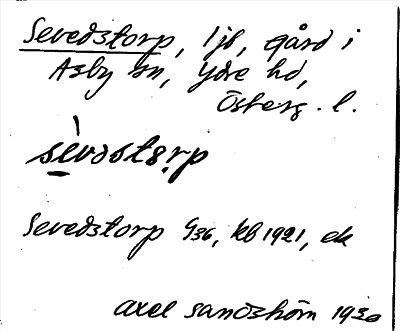 Sevedstorp, 1 jb, gård i
Asby sn, Ydre hd,
Österg. l.
sèvǝstɷrp
Sevedstorp G36, kb 1921, ek
Axel Sandshörn 1930